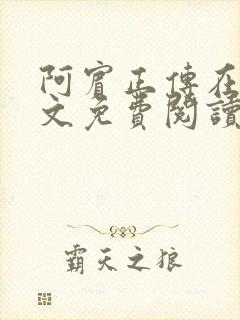 阿賓正傳在
文免費閱讀
霸天之狼